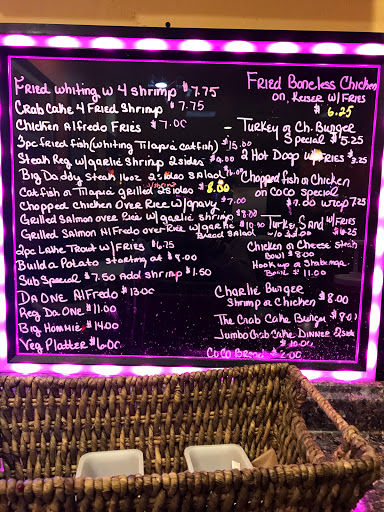 Fried Whiting w 4 Shrimp $7.75
Crab Cake 4 Fried Shrimp $7.75
Chicken Alfredo Fries $7.00
3pc fried fish (whiting Tilapia catfish) $15.00
Steak Reg w/garlic shrimp 2 sides
Big Daddy Steak 14oz 2 sides Salad
Catfish or Tilapia grilled 2 sides $8.00
Chopped Chicken over Rice w/gravy $7.00
Grilled Salmon over Rice w/ garlic shrimp $8.00
Grilled Salmon Alfredo over Rice w/garlic $10.00
Bread Salad
2pc Lake Trout w/Fries $6.75
Build a Potato starting at $8.00
Sub Special $7.50 Add shrimp $1.50
Da One Alfredo $13.00
Reg Da One $11.00
Big Hommie $14.00
Veg Platter $6.00
Fried Boneless Chicken
on Keiser w/ Fries
$6.25
Turkey or Ch. Burger
Special $5.25
2 Hot Dogs w/Fries $3.25
Chopped fish or Chicken
on Coco special
$7.00 wrap 7.25
Turkey Sand w/Fries
$6.25
Chicken or Cheese Steak
Bowl $8.00
Hook up or Shake
Bowl $11.00
Charlie Burger
Shrimp or Chicken $8.00
The Crab Cake Burger
Jumbo Crab Cake Dinner 2 side
$10.00
Coco Bread $2.00